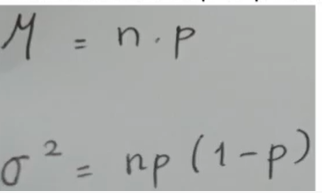 μ = n · p
σ² = np (1 - p)